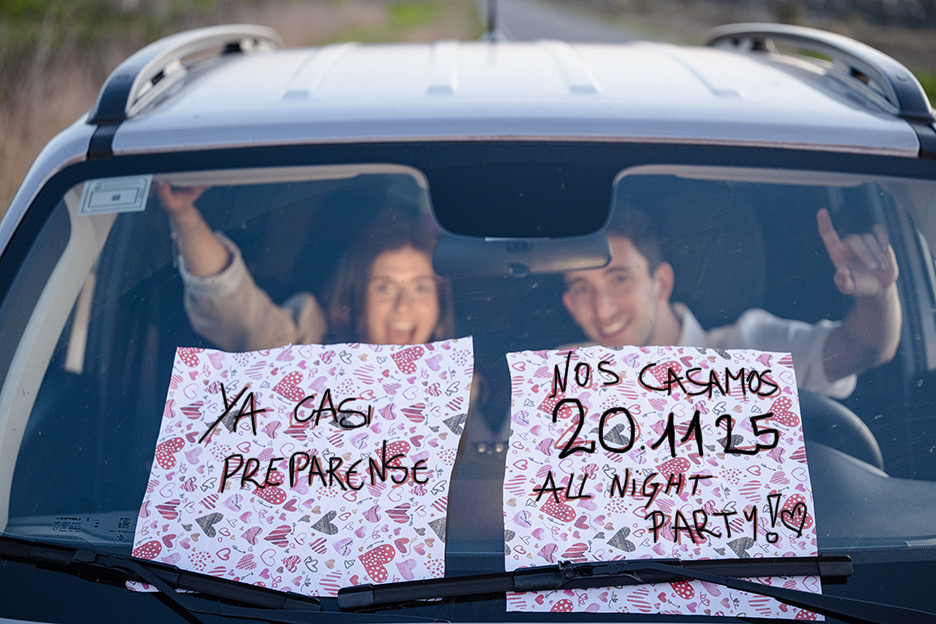 YA CASI
PREPARENSE
NOS CASAMOS
20.11.25
ALL NIGHT
PARTY! ♡